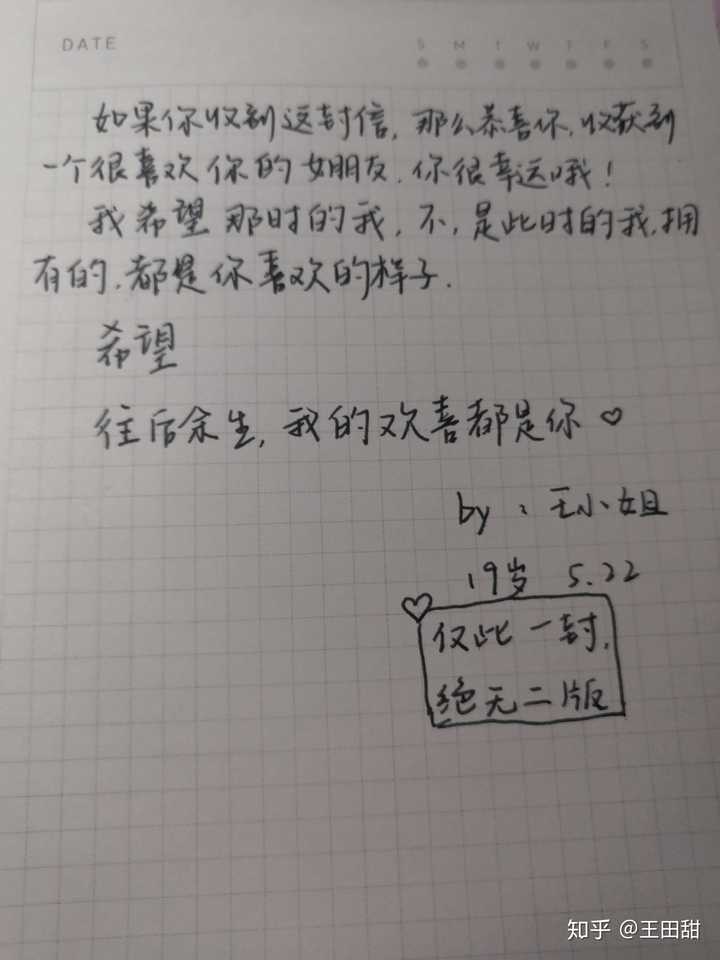 DATE
S M T W T F S
如果你收到这封信，那么恭喜你，收获到
一个很喜欢你的女朋友，你很幸运哦！
我希望那时的我，不，是此时的我，拥
有的，都是你喜欢的样子.
希望
往后余生，我的欢喜都是你♡
by：王小姐
19岁 5.22
仅此一封，
绝无二版
知乎 @王田甜